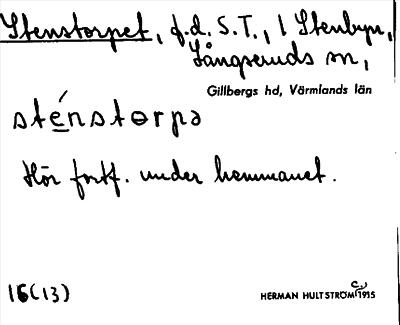 Stenstorpet, f.d. S.T., 1 Stenbyn,
Långseruds sn,
Gillbergs hd, Värmlands län
sténstɵrpə
Hör fortf. under hemmanet.
16(13)
HERMAN HULTSTRÖM c. 1915